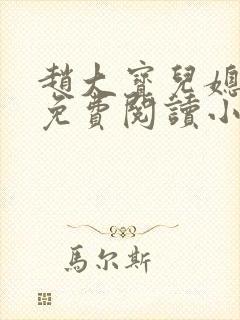 趙大寶兒媳
免費閱讀小
馬尔斯